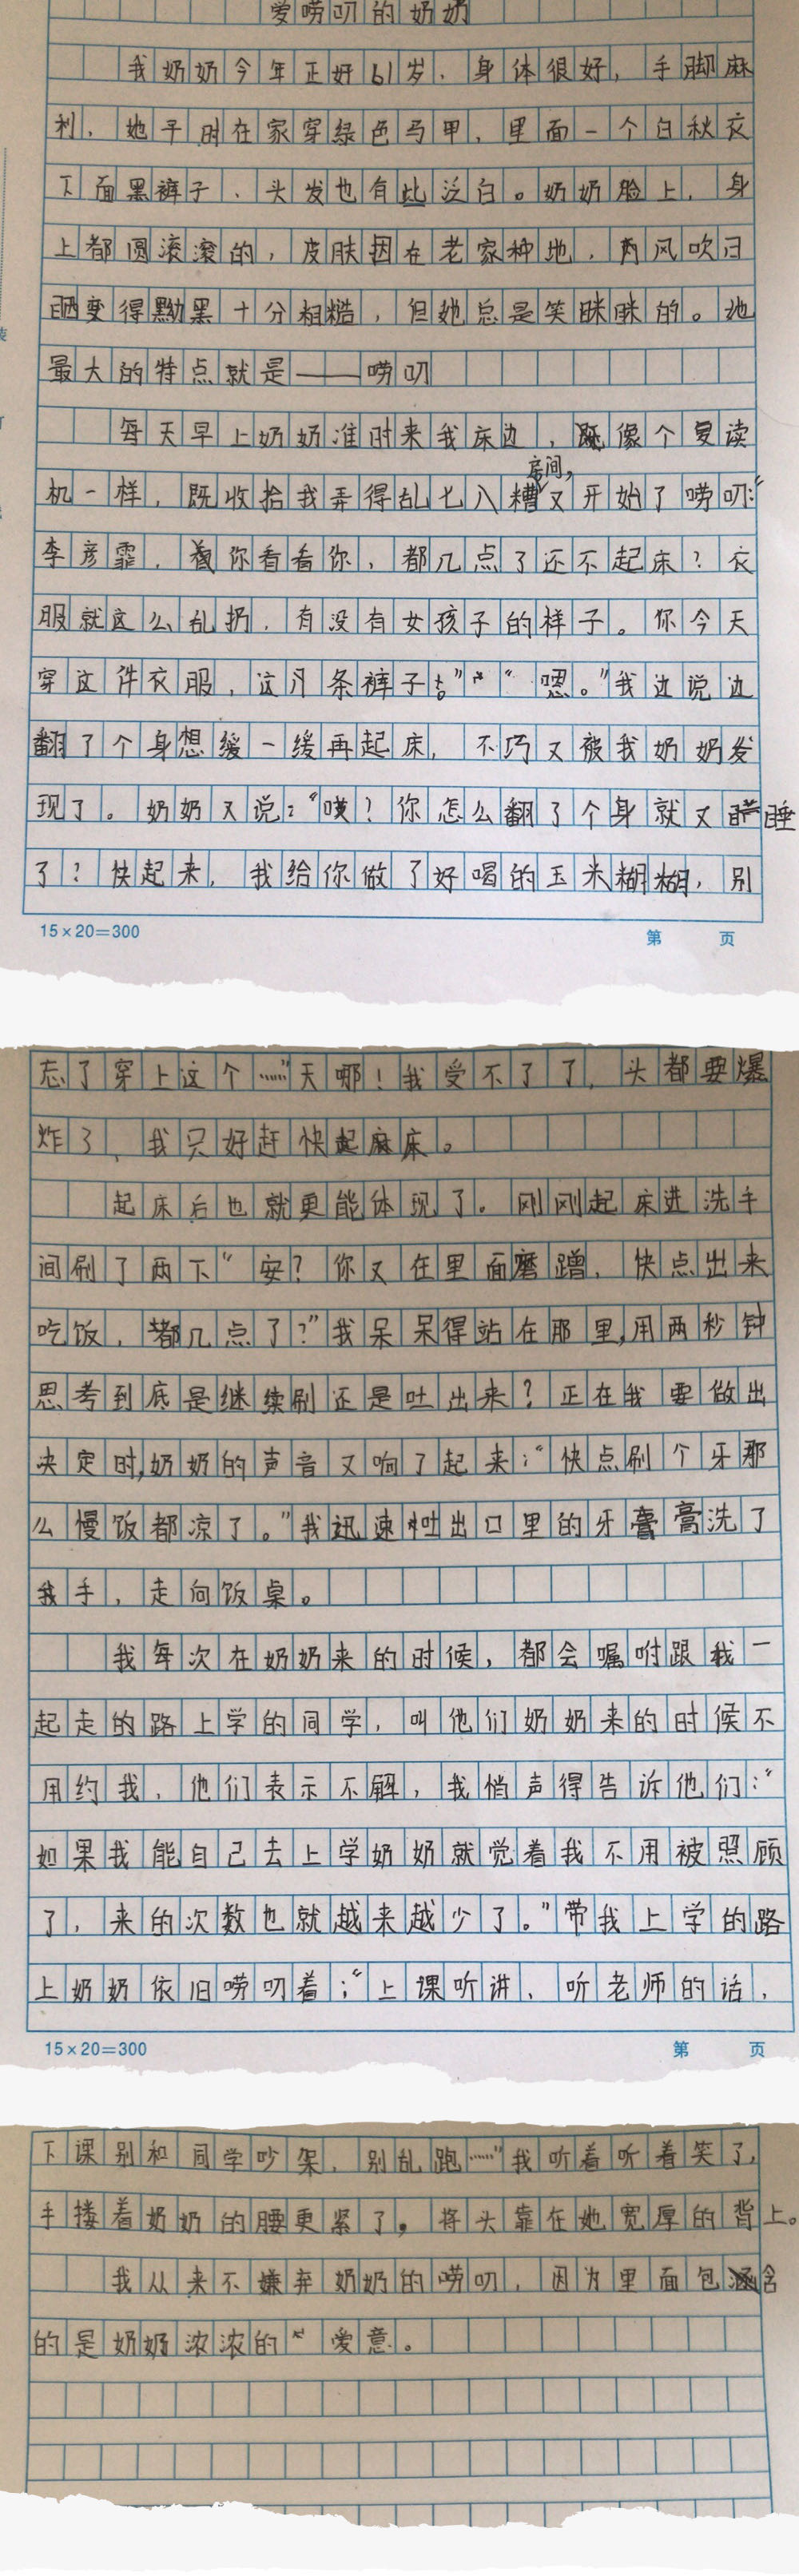 爱唠叨的奶奶
我奶奶今年正好61岁，身体很好，手脚麻
利，她平时在家穿绿色马甲，里面一个白秋衣
下面黑裤子、头发也有些泛白。奶奶脸上，身
上都圆滚滚的，皮肤因在老家种地，雨风吹日
晒变得黝黑十分粗糙，但她总是笑眯眯的。她
最大的特点就是——唠叨
每天早上奶奶准时来我床边，像个复读
机一样，既收拾我弄得乱七八糟房间，又开始了唠叨:“
李彦霏，你看看你，都几点了还不起床？衣
服就这么乱扔，有没有女孩子的样子。你今天
穿这件衣服，这条裤子”“嗯。”我边说边
翻了个身想缓一缓再起床，不巧又被我奶奶发
现了。奶奶又说：“咦？你怎么翻了个身就又睡
了？快起来，我给你做了好喝的玉米糊糊，别
忘了穿上这个……”天哪！我受不了了，头都要爆
炸了，我只好赶快起床。
起床后也就更能体现了。刚刚起床进洗手
间刷了两下“安？你又在里面磨蹭，快点出来
吃饭，都几点了？”我呆呆得站在那里，用两秒钟
思考到底是继续刷还是吐出来？正在我要做出
决定时，奶奶的声音又响了起来：“快点刷个牙那
么慢饭都凉了。”我迅速吐出口里的牙膏洗了
手，走向饭桌。
我每次在奶奶来的时候，都会嘱咐跟我一
起走的路上学的同学，叫他们奶奶来的时候不
用约我，他们表示不解，我悄声得告诉他们：“
如果我能自己去上学奶奶就觉着我不用被照顾
了，来的次数也就越来越少了。”带我上学的路
上奶奶依旧唠叨着：“上课听讲、听老师的话，
下课别和同学吵架，别乱跑……”我听着听着笑了，
手搂着奶奶的腰更紧了，将头靠在她宽厚的背上。
我从来不嫌弃奶奶的唠叨，因为里面包含
的是奶奶浓浓的爱意。
15×20=300
第 页
15×20=300
第 页